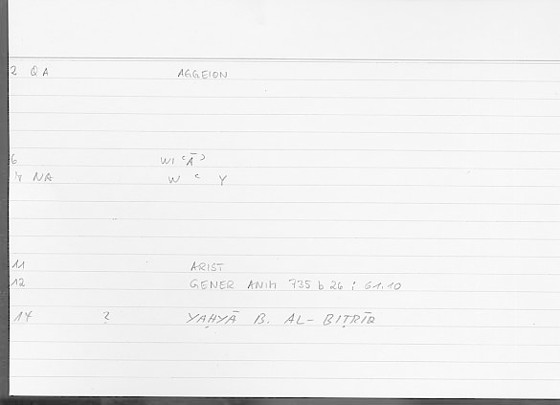 2 QA AGGEION
6 WI ʿĀʾ
7 NA W ʿ Y
11 ARIST
12 GENER ANIM 735 b 26 ; 61.10
17 ? YAḤYĀ B. AL-BIṬRĪQ